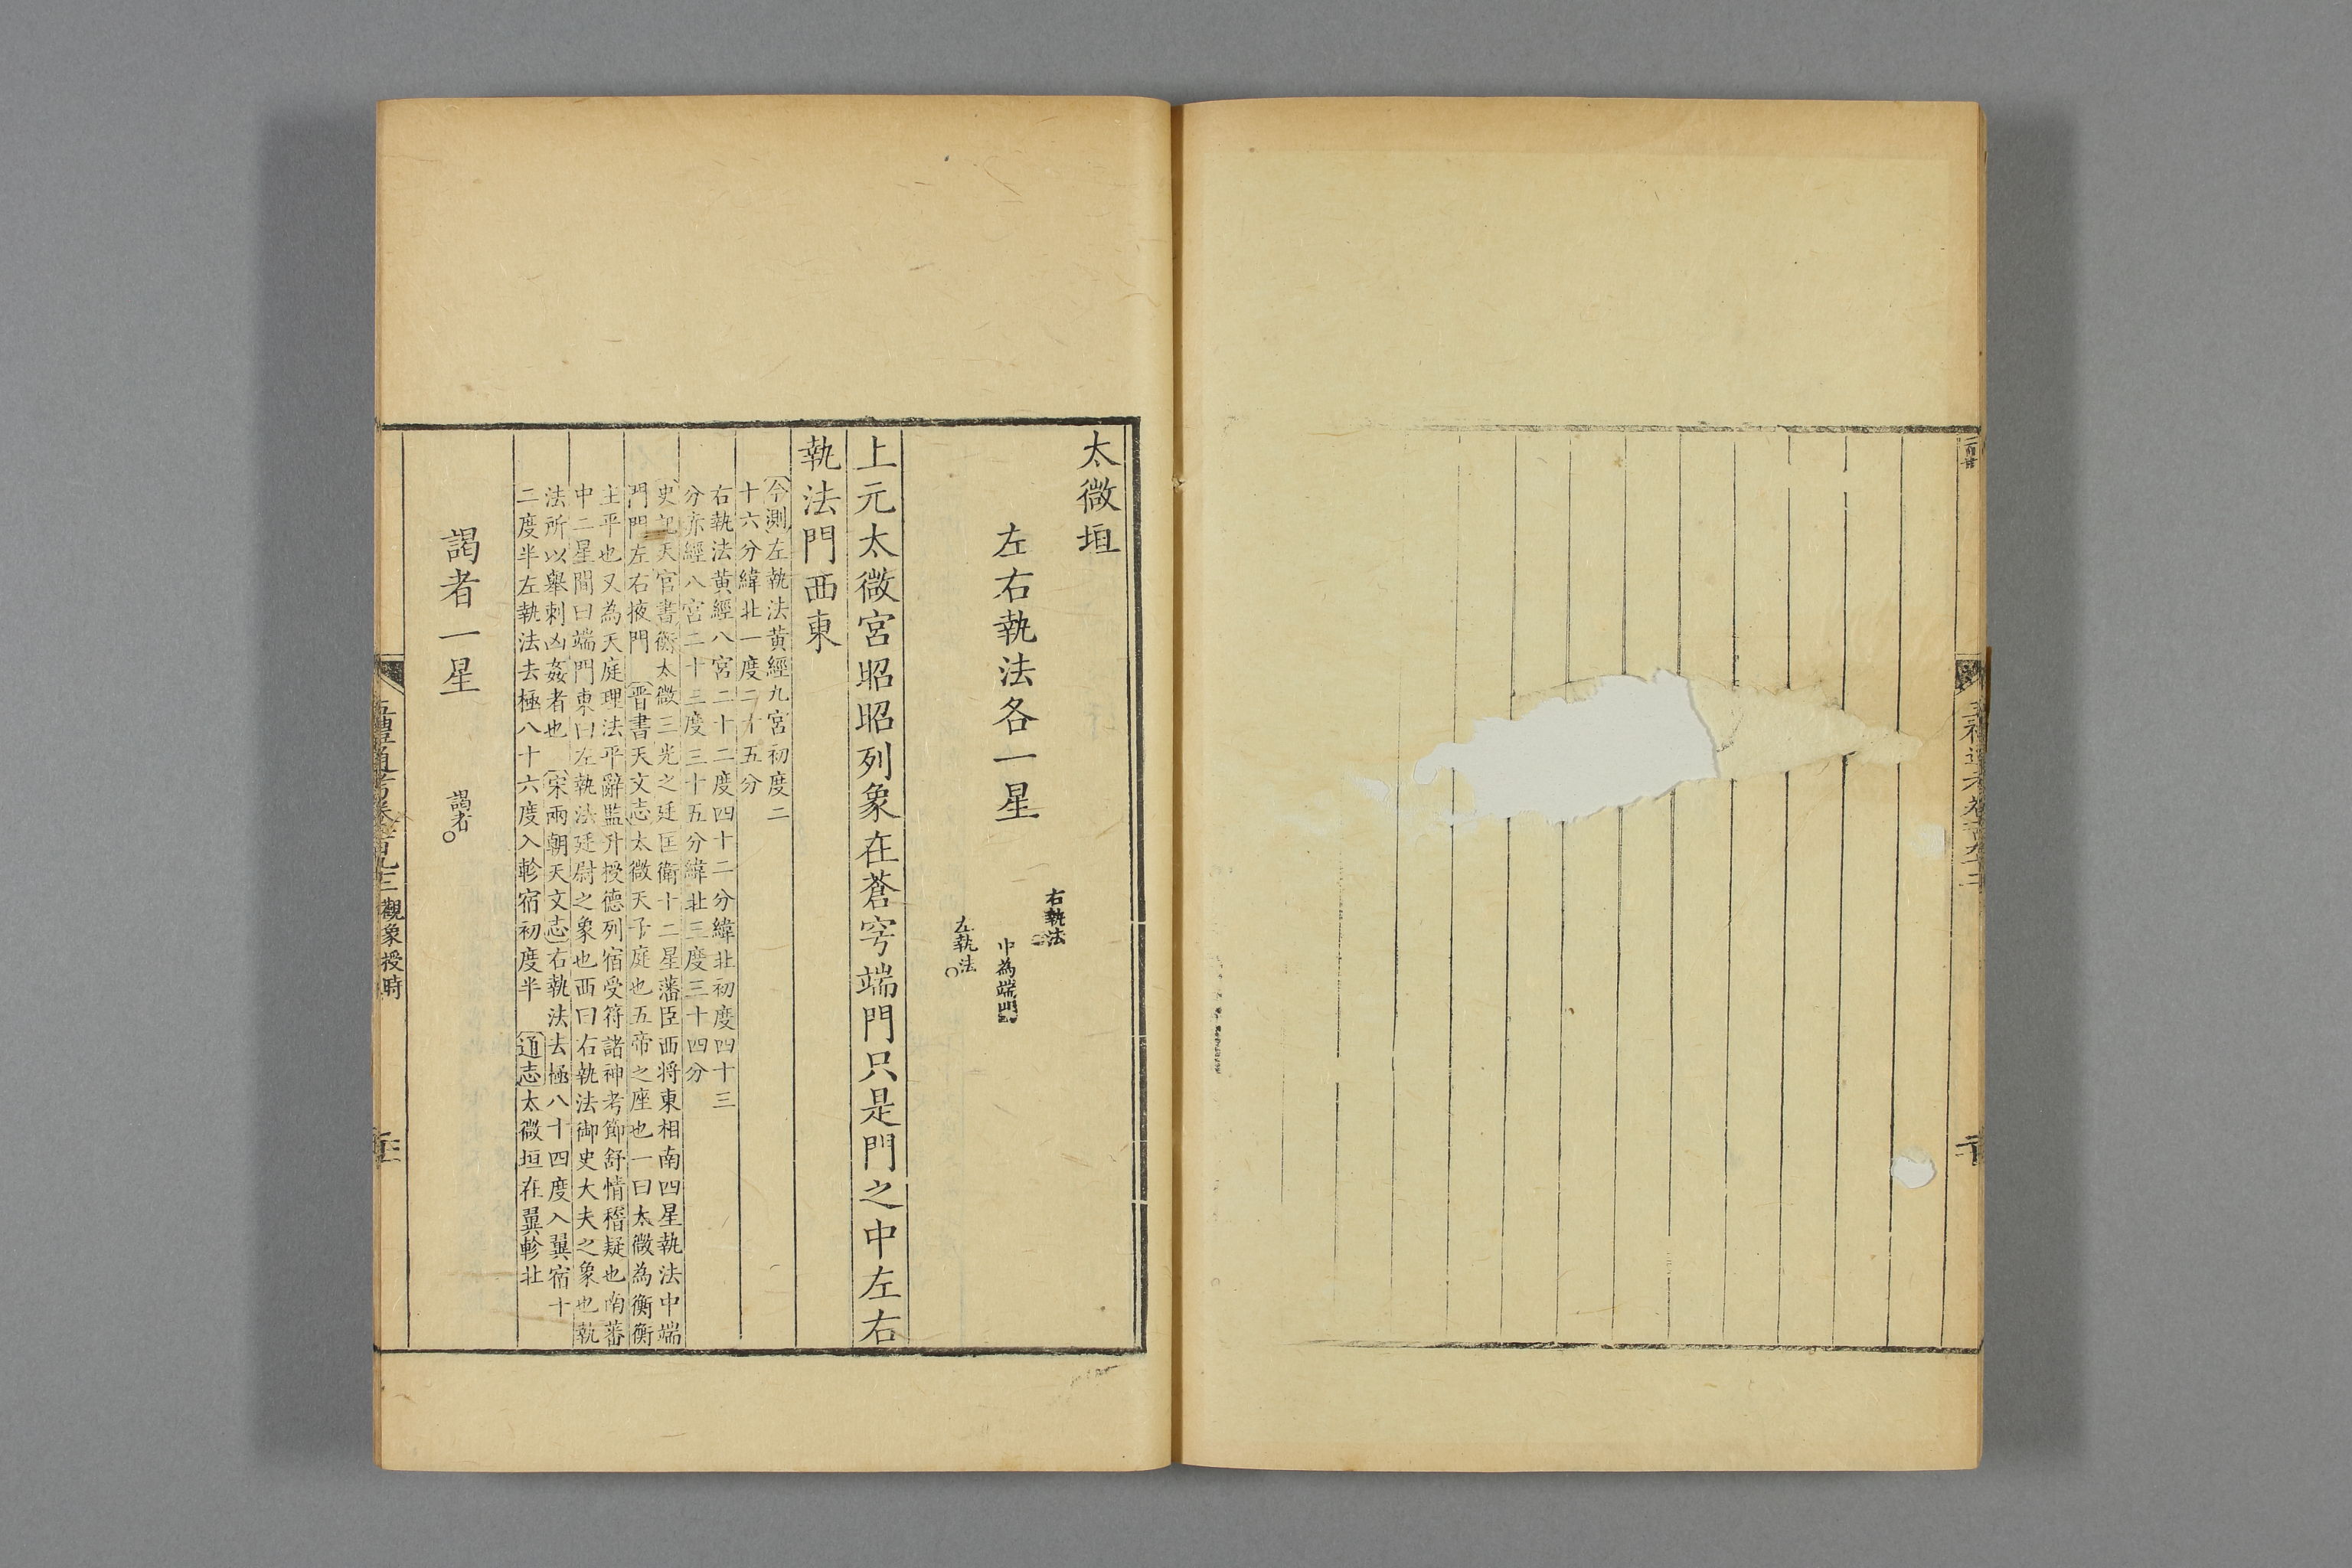 太微垣
左右執法各一星
右執法
中為端門
左執法
上元太微宮昭昭列象在蒼穹端門只是門之中左右
執法門西東
今測左執法黃經九宮初度二
十六分緯北一度二十五分
右執法黃經八宮二十二度四十二分緯北初度四十三
分赤經八宮二十三度三十五分緯北三度三十四分
史記天官書衡太微三光之廷匡衛十二星藩臣西將東相南四星執法中端
門門左右掖門 晉書天文志太微天子庭也五帝之座也一曰太微為衡衡
主平也又為天庭理法平辭監升授德列宿受符諸神考節舒情稽疑也南蕃
中二星間曰端門東曰左執法廷尉之象也西曰右執法御史大夫之象也執
法所以舉刺凶姦者也 宋兩朝天文志右執法去極八十四度入翼宿十
二度半左執法去極八十六度入軫宿初度半 通志太微垣在翼軫北
謁者一星
謁者
五禮通考卷百九三 觀象授時